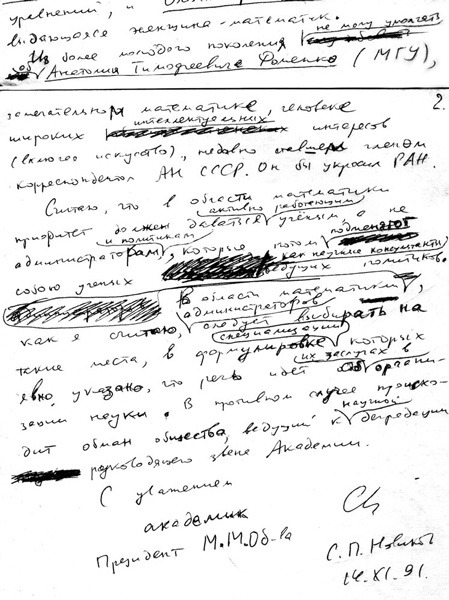 уравнений, и
выдающаяся женщина-математик.
Из более молодого поколения не могу умолчать
об Анатолии Тимофеевиче Фоменко (МГУ),
2.
замечательном математике, человеке
широких интеллектуальных интересов
(включая искусство), недавно ставшем членом
корреспондентом АН СССР. Он бы украсил РАН.
Считаю, что в области математики
приоритет должен даваться активно работающим учёным а не
администраторам и политикам, которые потом подменяют
собою ученых как научные консультанты ведущих политиков.
В области математики,
как я считаю, администраторов следует выбирать на
такие места, в формулировке специализации которых
явно указано, что речь идет об их заслугах в органи-
зации науки. В противном случае происхо-
дит обман общества, ведущий к научной деградации
руководящего звена Академии.
С уважением
академик
Президент М.М.Об-ва
С.П. Новиков
14.XI.91.